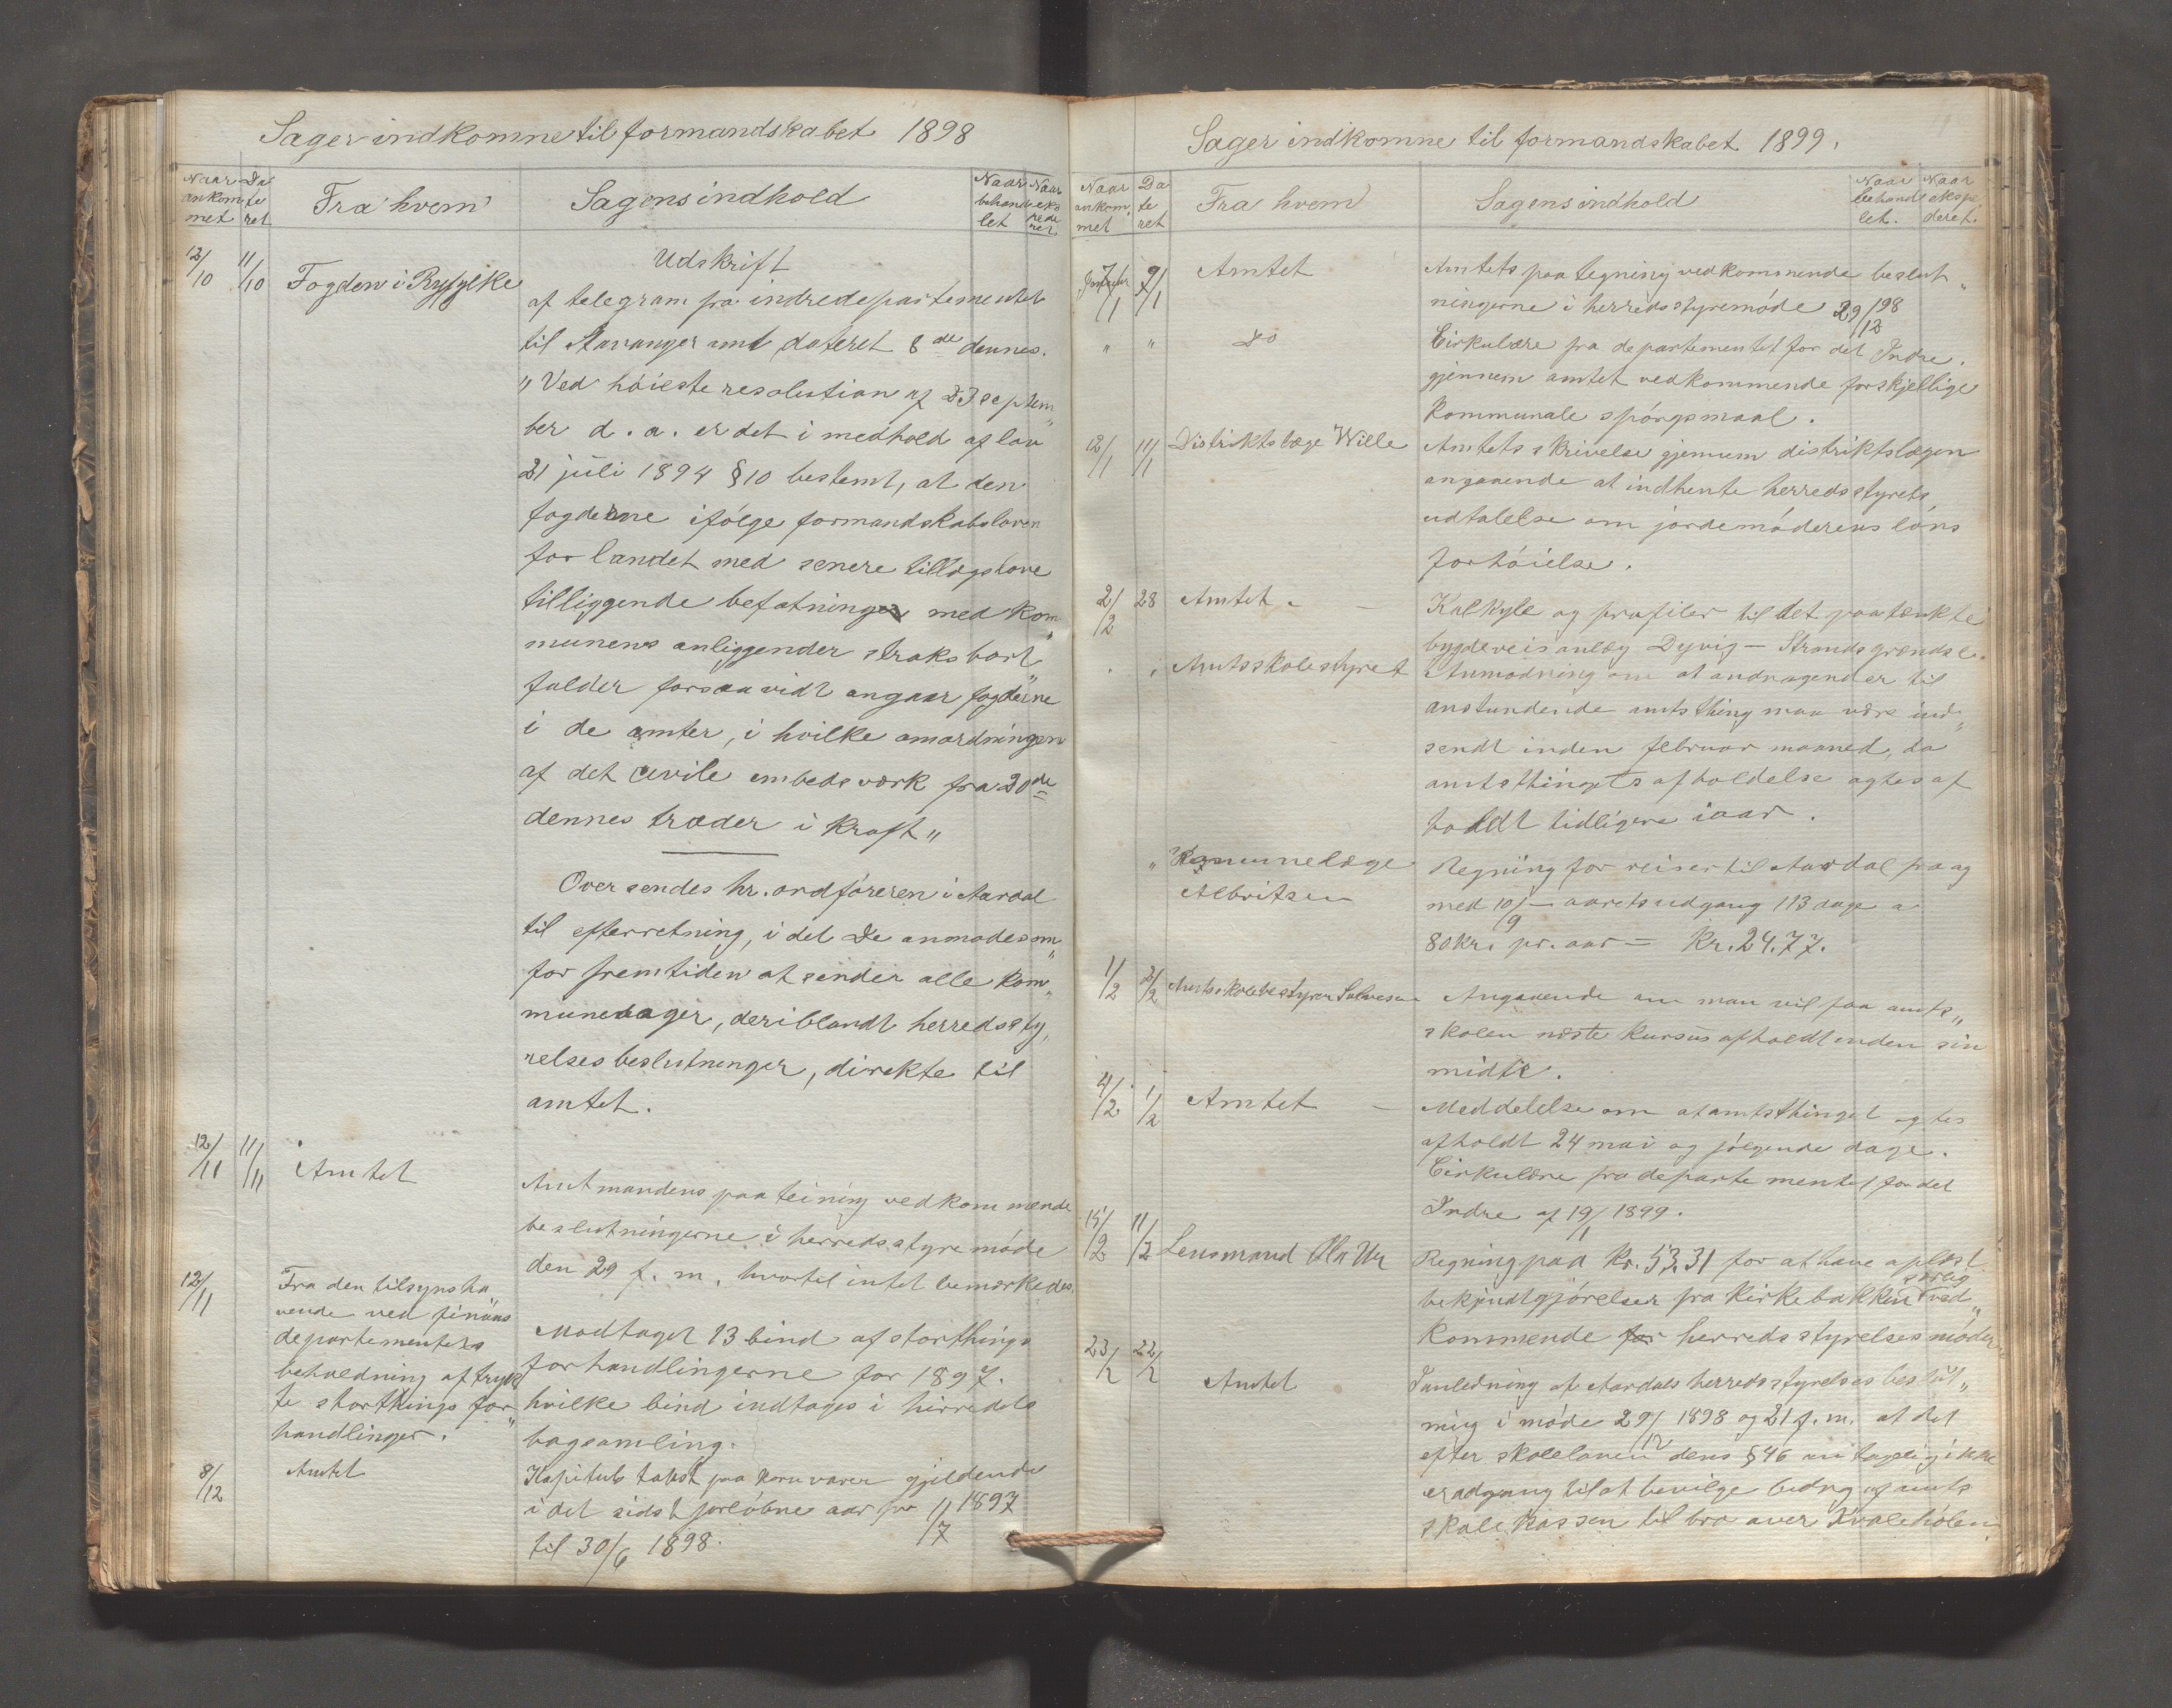 Sager indkomne til formandskabet 1898
Naar ankom met
Da te ret
Fra hvem
Sagens indhold
Naar behand let
Naar eks pede ret
12/10 11/10 Fogden i Ryfylke
Udskrift
af telegram fra indredepartementet
til Stavanger amt dateret 8de dennes.
"Ved höieste resolution af 23 septem"
ber d. a. er det i medhold af lov
21 juli 1894 § 10 bestemt, at den
fogderne ifölge formandskabsloven
for landet med senere tillægslove
tilliggende befatning med kom"
munens anliggender straks bort"
falder forsaavidt angaar fogderne
i de amter, i hvilke omordningen
af det civile embedsværk fra 20de
dennes træder i kraft"
Oversendes hr. ordföreren i Aardal
til efterretning, i det De anmodes om"
for fremtiden at sender alle kom"
munesager, deriblandt herredssty"
relsesbeslutninger, direkte til
amtet.
12/11 11/11 Amtet
Amtmandens paateining vedkommende
beslutningerne i herredsstyremöde
den 29 f. m. hvortil intet bemærkedes.
12/11 Fra den tilsynsha"
vende ved finans
departementets
beholdning af tryk
te storthings for"
handlinger.
Modtaget 13 bind af storthings
forhandlingerne for 1897.
hvilke bind indtages i herredets
bogsamling.
8/12 Amtet
Kapitels takst paa kornvarer gjeldende
i det sidst forlöbne aar fra 1/7 1897
til 30/6 1898.
Sager indkomne til formandskabet 1899.
Naar ankom met
Da te ret
Fra hvem
Sagens indhold
Naar behand let.
Naar ekspe deret.
9/1 Amtet
Amtets paategning vedkommende beslut"
ningerne i herredsstyremöde 29/12 98
" " Do
Cirkulære fra departementet for det Indre.
gjennem amtet vedkommende forskjellige
kommunale spörgsmaal.
12/1 11/1 Distriktslæge Wille
Amtets skrivelse gjennem distriktslægen
angaaende at indhente herredsstyrets
udtalelse om jordemöderens löns
forhöielse.
2/2 28 Amtet. —
Kalkyle og profiler til det paatænkte
bygdeveisanlæg Dyvig — Strands grændse.
" " Amtsskolestyret
Anmodning om at andragender til
anstundende amtsthing maa være ind"
sendt inden februar maaned, da
amtsthingets afholdelse agtes af
holdt tidligere iaar.
" Kommunelæge
Albritsen
Regning for reiser til Aardal fra og
med 10/9 — aarets udgang 113 dage a
80 kr. pr. aar = Kr. 24.77.
1/2 2/2 Amtsskolebestyrer Salvesen
Angaaende om man vil faa amts"
skolen næste kursus afholdt inden sin
midte.
4/2 1/2 Amtet —
Meddelelse om at amtsthinget agtes
afholdt 24 mai og fölgende dage.
Cirkulære fra departementet for det
Indre af 19/1 1899.
15/2 11/2 Lensmand Ola Ur
Regning paa Kr. 53.31 for at have oplæst
bekjendtgjörelser fra kirkebakken særlig ved"
kommende for herredsstyrelsesmöder
23/2 22/2 Amtet
I anledning af Aardals herredsstyrelses beslut"
ning i möde 29/12 1898 og 21 f. m. at det
efter skoleloven dens § 46 antagelig ikke
er adgang til at bevilge bidrag af amts
skolekassen til bro over Kvalehölen.